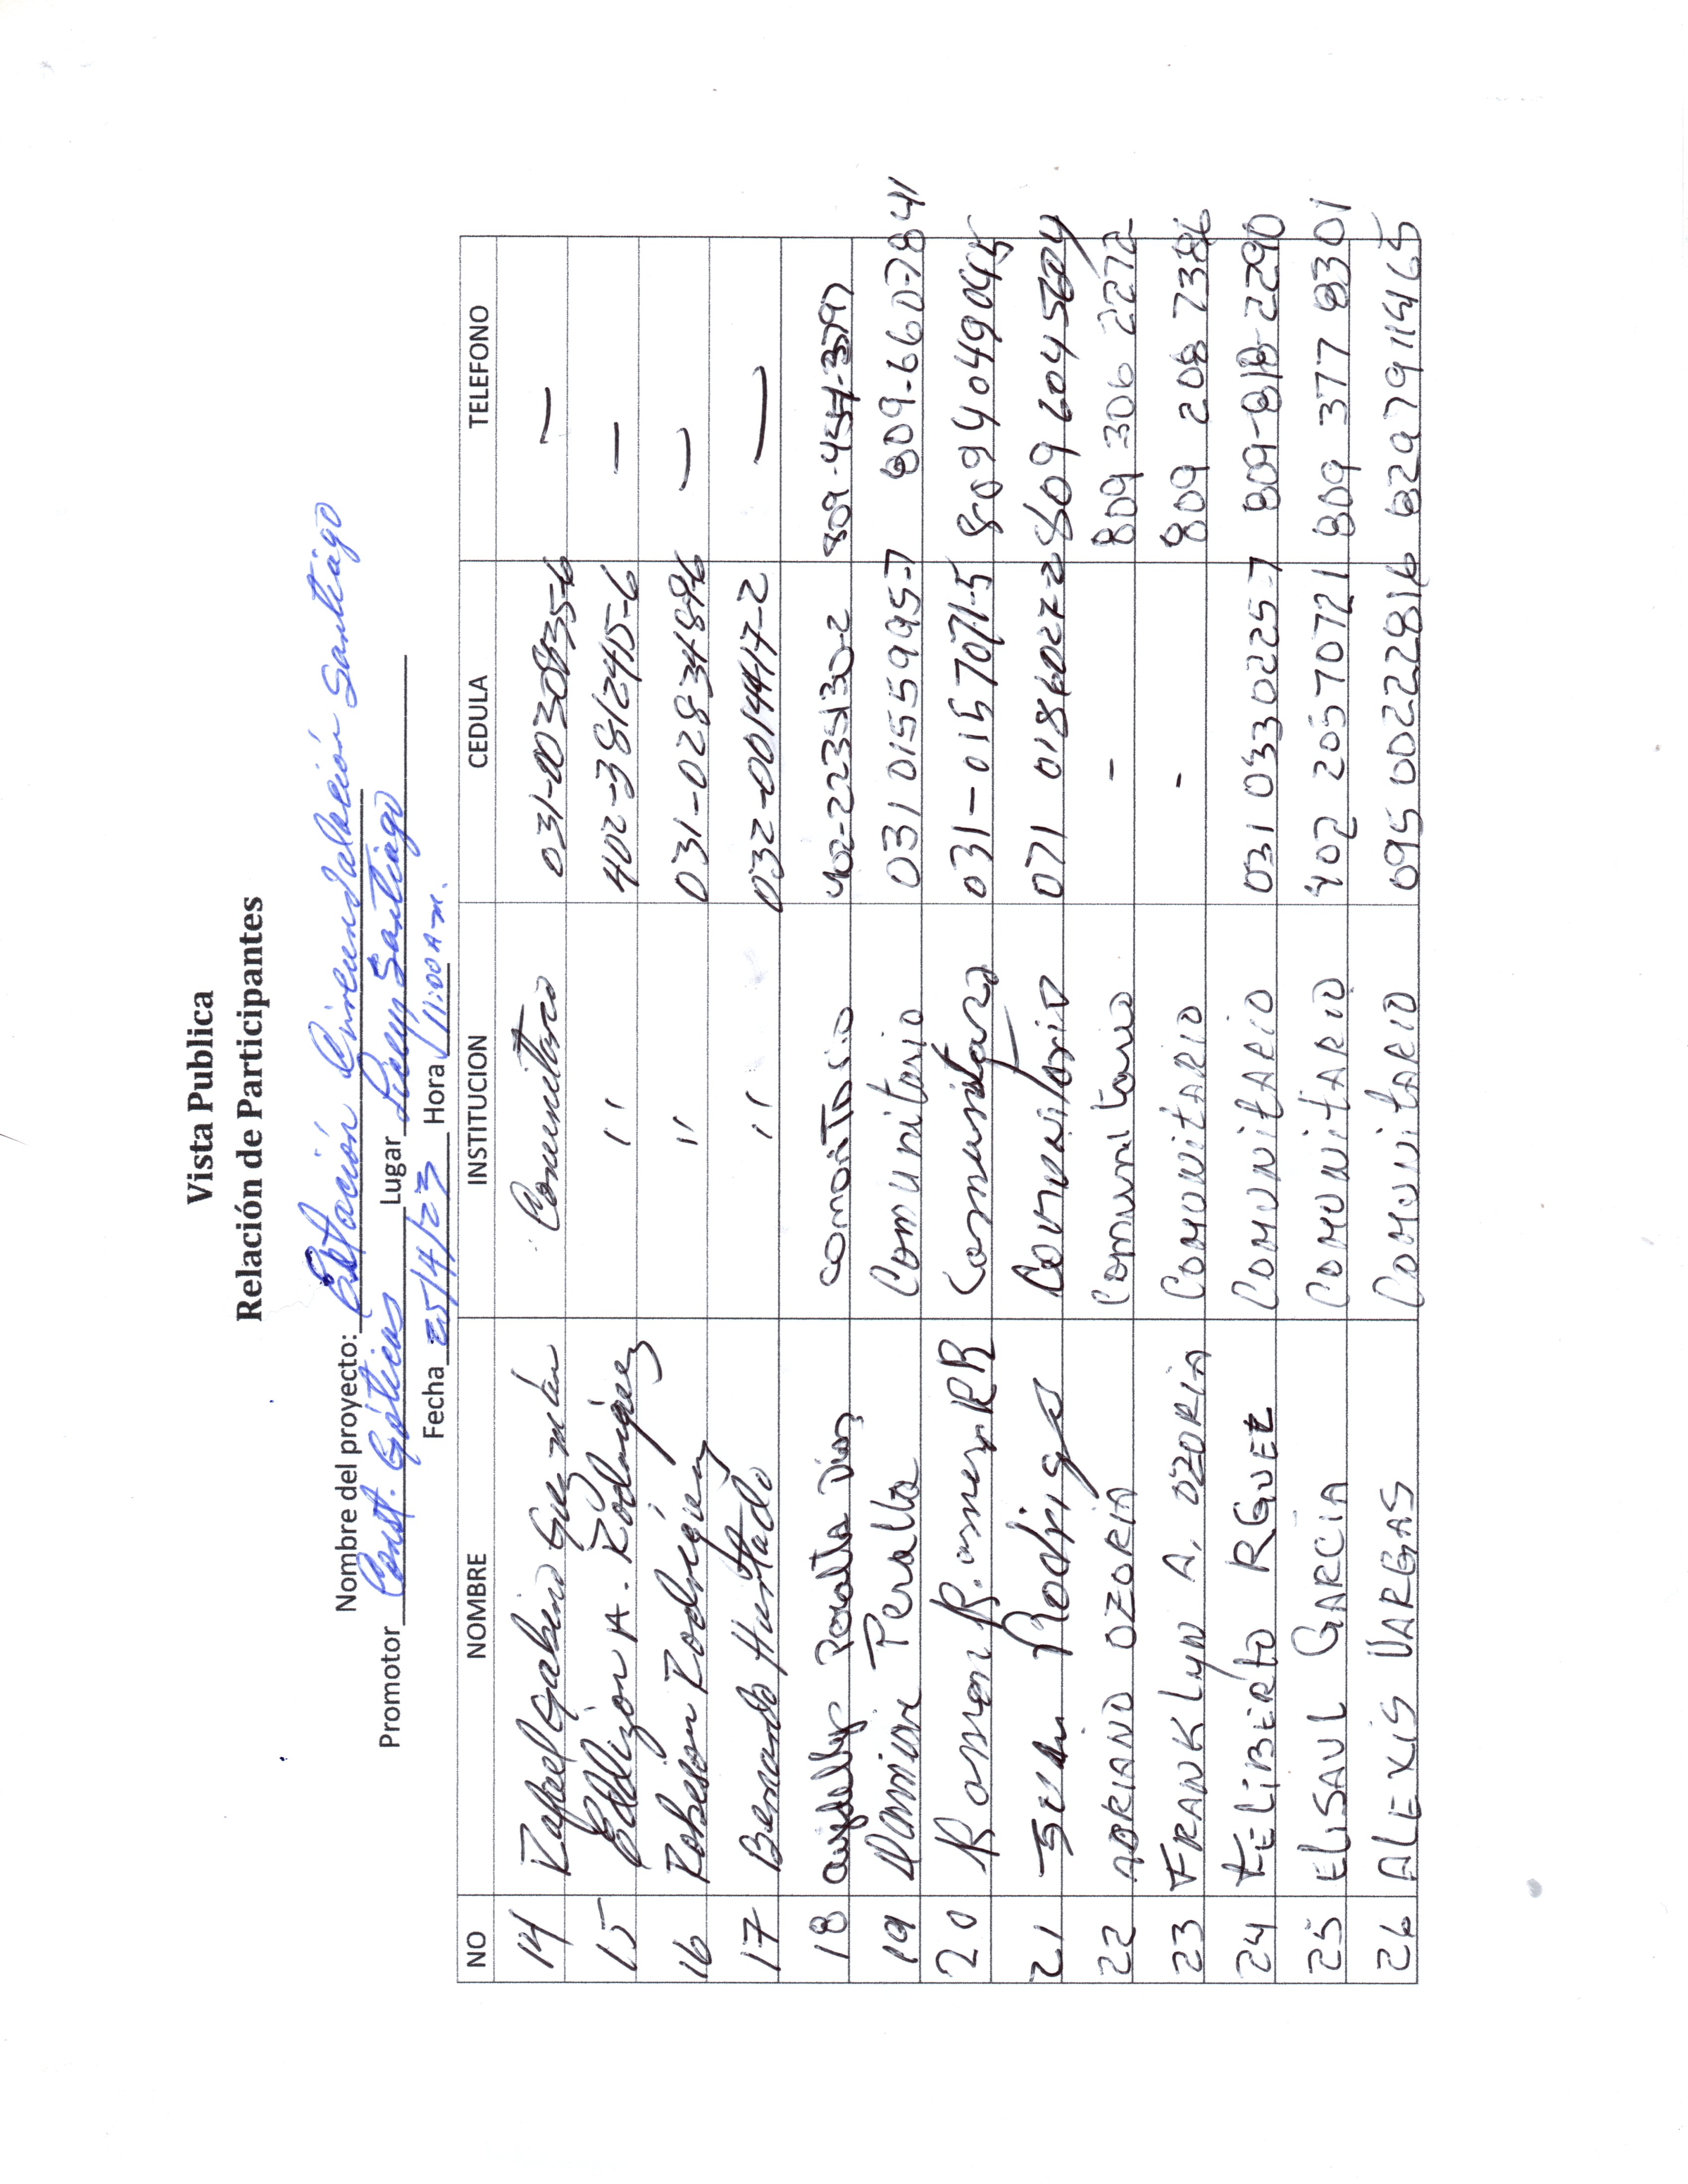 Vista Publica
Relación de Participantes
Nombre del proyecto: Estación Circunvalación Santiago
Promotor Const. Góticas Lugar Licey, Santiago
Fecha 25/4/23 Hora 11:00 A.m.
NO NOMBRE INSTITUCION CEDULA TELEFONO
14 Rafael Gabino Guzmán Comunitario 031-0030835-6 —
15 Eddizon A. Rodríguez " 402-3812415-6 —
16 Robeson Rodríguez " 031-0283489-6 —
17 Bernardo Hurtado " 032-0014417-2 —
18 Peralta Diaz 402-2235130-2 809-454-3797
19 Damian Peralta Comunitario 031 0155995-7 809-660-7841
20 Ramon R. Comunitario 031-0157071-5 8094049045
21 Juan Rodrigo Comunitario 071 0186027-2 809 204 5624
22 ADRIANO OZORIA Comunitario - 809 306 2272
23 FRANKLyN A. OZORIA COMUNitARIO - 809 208 7386
24 FELiBERTO RGUEZ COMUNitARIO 031 0330225-7 809-818-2290
25 ELiSAUL GARCIA COMUNitARIO 402 20570721 809 377 8301
26 ALEXiS VARGAS COMUNitARIO 095 0022281 6 8297911465